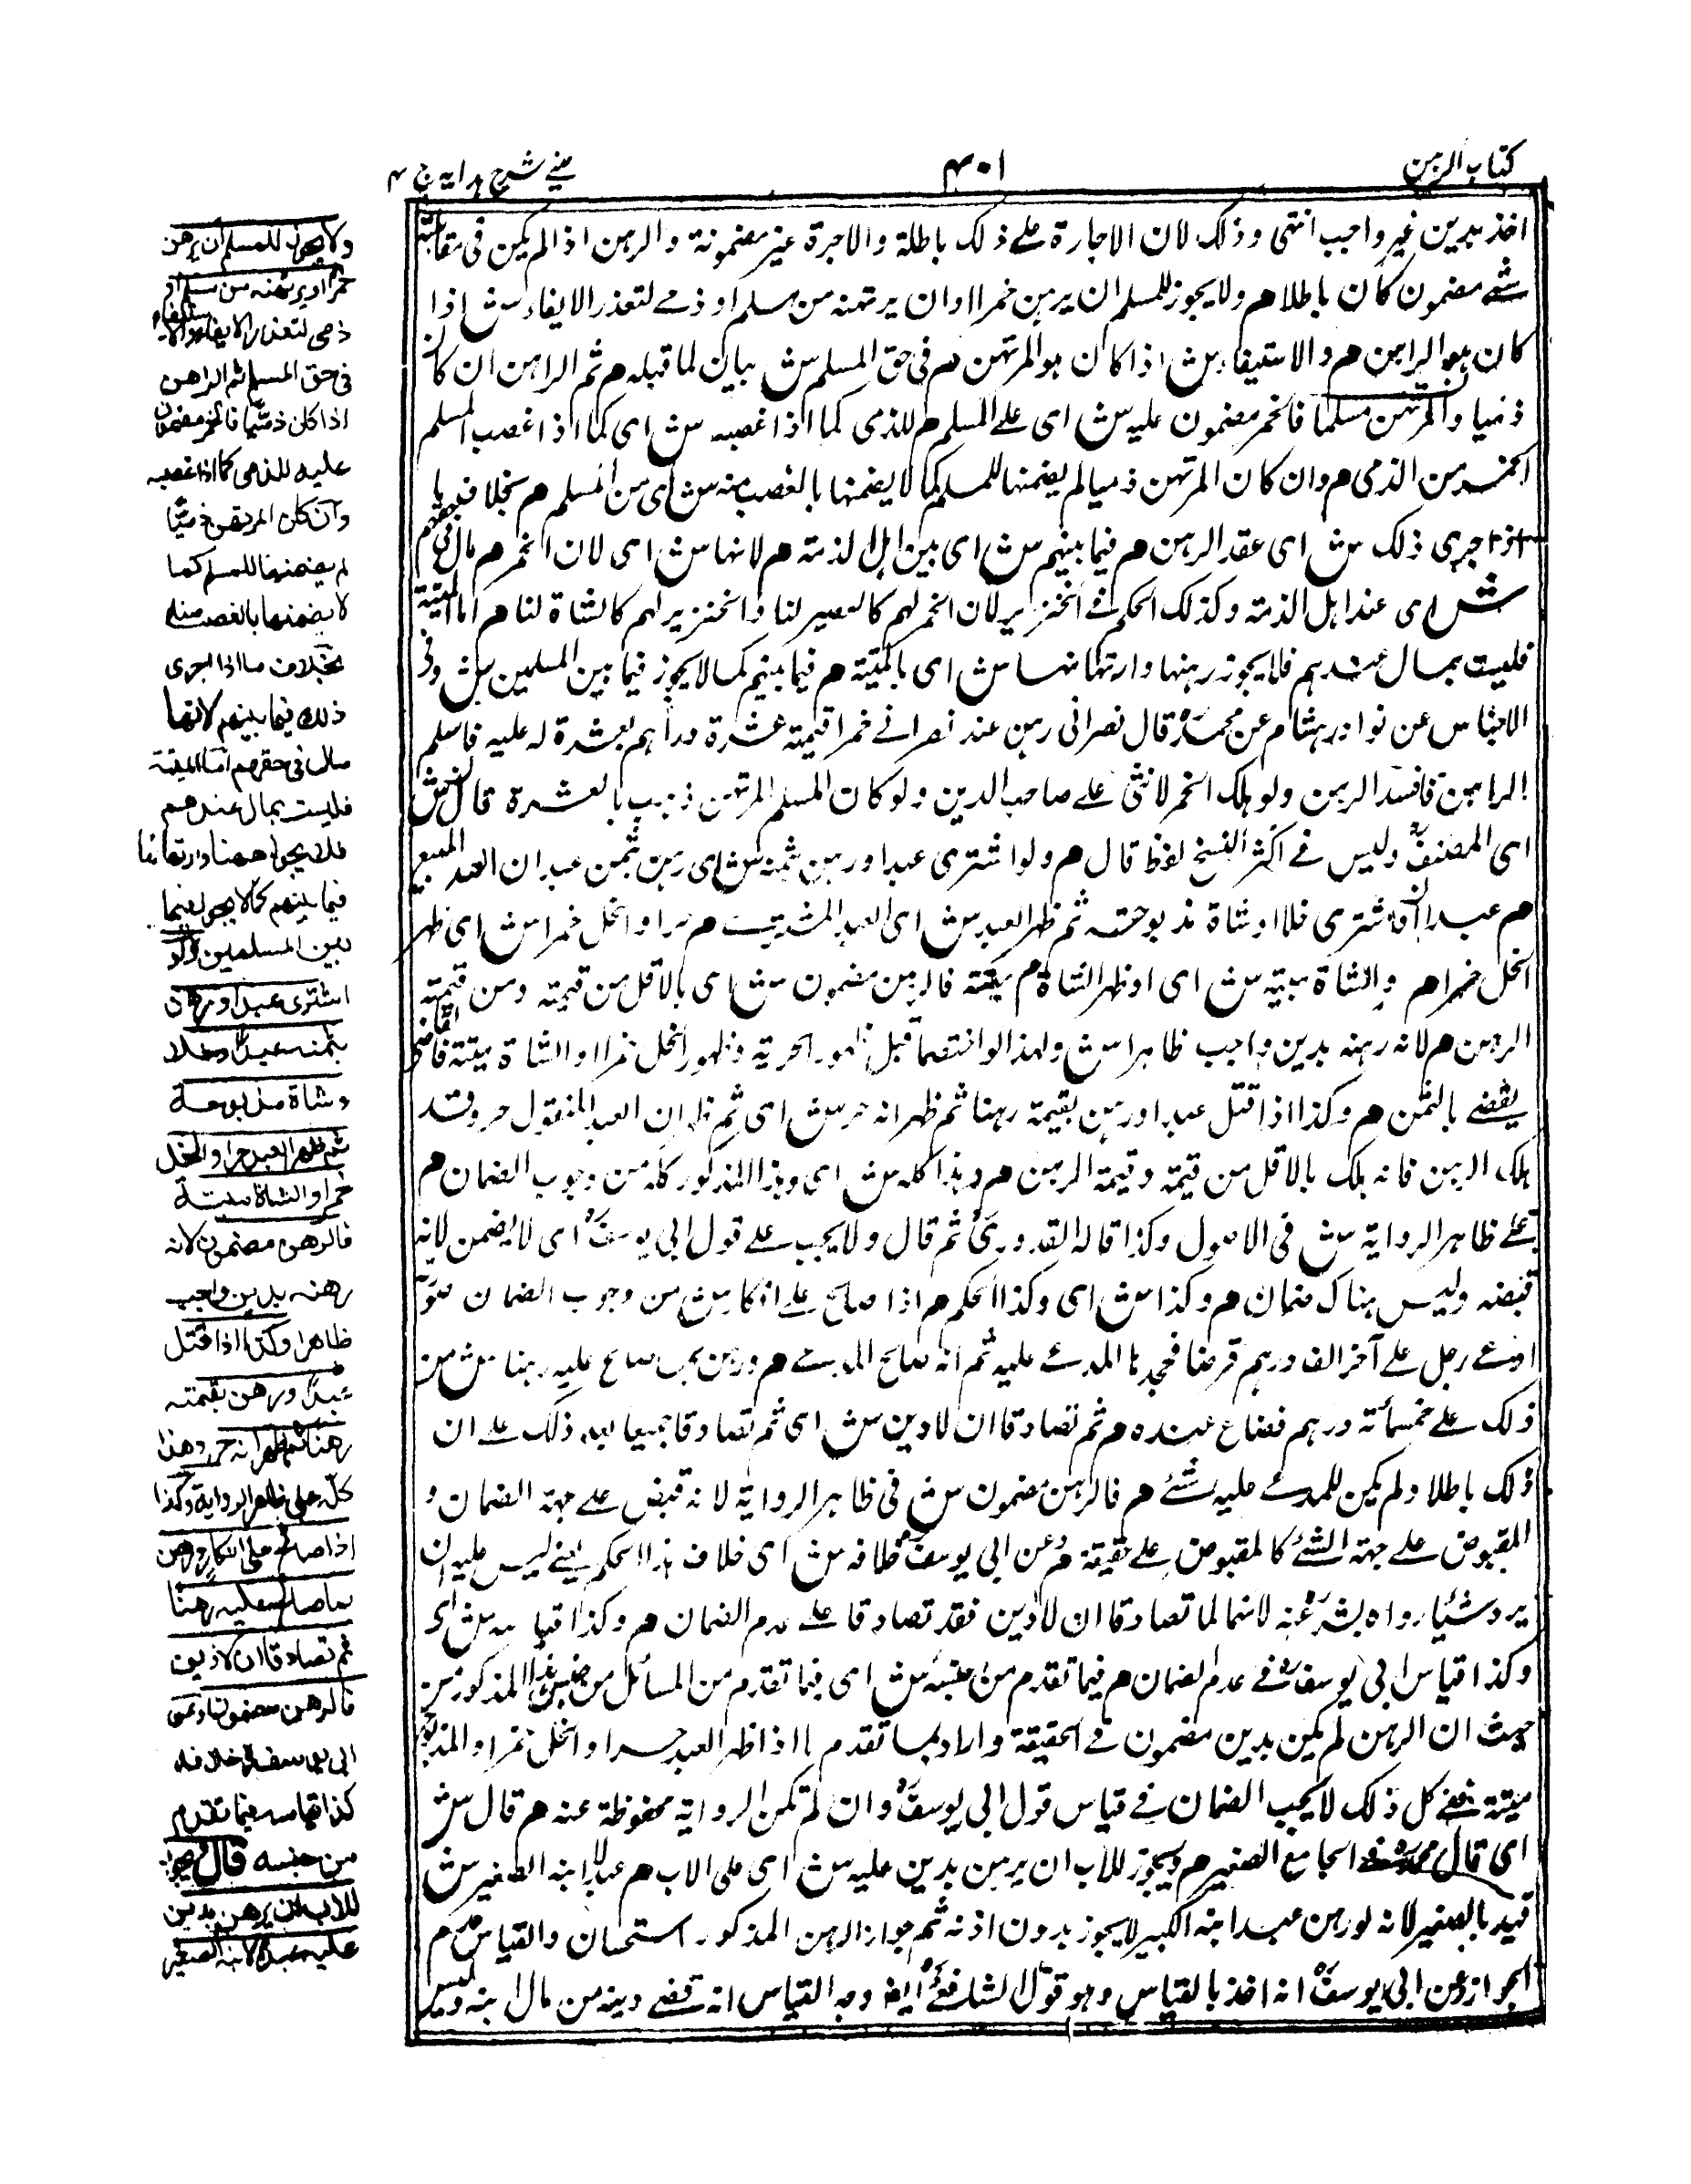 كتاب الرهن
۴۰۱
عینے شرح ہدایہ ج ۴
اخذ بدين غير واجب انتهى وذلك لان الاجارة على ذلك باطلة والاجرة غير مضمونة والرهن اذا لم يكن فى مقابلة
شے مضمون كان باطلا م ولا يجوز للمسلم ان يرهن خمرا او ان يرتهنه من مسلم او ذمے لتعذر الايفاء ش اذا
كان هو الراهن م والاستيفاء ش اذا كان هو المرتهن م فى حق المسلم ش بيان لما قبله م ثم الراهن ان كان
ذميا والمرتهن مسلما فالخمر مضمون عليه ش اى على المسلم م للذمى كما اذا غصبه ش اى كما اذا غصب المسلم
الخمر من الذمى م وان كان المرتهن ذميا لم يضمنها للمسلم كما لا يضمنها بالغصب منه ش اى من المسلم م بخلاف ما
اذا جرى ذلك ش اى عقد الرهن م فيما بينهم ش اى بين اهل الذمة م لانها ش اى لان الخمر م مال فى حقهم
ش اى عند اهل الذمة وكذلك الحكم فے الخنزير لان الخمر لهم كالعصير لنا والخنزير لهم كالشاة لنا م اما الميتة
فليست بمال عندهم فلا يجوز رهنها وارتهانها ش اى بالميتة م فيما بينهم كما لا يجوز فيما بين المسلمين ش وفى
الاجناس عن نوادر هشام عن محمدؒ قال نصرانى رهن عند نصرانے خمرا قيمته عشرة دراهم بعشرة له عليه فاسلم
الراهن فافسد الرهن ولو هلك الخمر لا شئ على صاحب الدين ولو كان المسلم المرتهن ذهب بالعشرة قال ش
اى المصنفؒ وليس فے اكثر النسخ لفظ قال م ولو اشترى عبدا ورهن ثمنه ش اى رهن بثمن عبدا ان العبد المبيع
م عبدا ان اشترى خلا او شاة مذبوحة ثم ظهر العبد ش اى العبد المشترى م حرا او الخل خمرا ش اى ظهر
الخل خمرا م والشاة ميتة ش اى او ظهر الشاة م ميتة فالرهن مضمون ش اى بالاقل من قيمته ومن قيمة
الرهن م لانه رهنه بدين واجب ظاهرا ش ولهذا لو اختصما قبل ظهور الحرية وظهور الخل خمرا او الشاة ميتة فالقاضى
يقضے بالثمن م وكذا اذا قتل عبدا ورهن بقيمته رهنا ثم ظهر انه حر ش اى ثم ظهر ان العبد المقتول حر وقد
هلك الرهن فانه هلك بالاقل من قيمته وقيمة الرهن م وهذا كله ش اى وهذا المذكور كله من وجوب الضمان م
على ظاهر الرواية ش فى الاصول وكذا قاله القدورىؒ ثم قال ولا يجب على قول ابى يوسفؒ اى لا يضمن لانه
قبضه وليس هناك ضمان م وكذا ش اى وكذا الحكم م اذا صالح على انكار ش من وجوب الضمان صورته
ادعى رجل على آخر الف درهم قرضا فجحدها المدعے عليه ثم انه صالح المدعے م ورهن بما صالح عليه رهنا ش من
ذلك على خمسمائة درهم فضاع عنده م ثم تصادقا ان لا دين ش اى ثم تصادقا جميعا بعد ذلك على ان
ذلك باطلا ولم يكن للمدعے عليه شئے م فالرهن مضمون ش فى ظاهر الرواية لانه قبض على جهة الضمان و
المقبوض على جهة الشئ كالمقبوض على حقيقته م وعن ابى يوسفؒ خلافه ش اى خلاف هذا الحكم يعنے ليس عليه ان
يرد شيئا رواه بشرؒ عنه لانهما لما تصادقا ان لا دين فقد تصادقا على عدم الضمان م وكذا قياسه ش اى
وكذا قياس ابى يوسفؒ فے عدم الضمان م فيما تقدم من جنسه ش اى فيما تقدم من المسائل من جنس هذا المذكور من
حيث ان الرهن لم يكن بدين مضمون فے الحقيقة واراد بما تقدم ما اذا ظهر العبد حرا والخل خمرا والمذبوحة
ميتة ففے كل ذلك لا يجب الضمان فے قياس قول ابى يوسفؒ وان لم تكن الرواية محفوظة عنه م قال ش
اى قال محمدؒ فے الجامع الصغير م ويجوز للاب ان يرهن بدين عليه ش اى على الاب م عبدا لابنه الصغير ش
قيد بالصغير لانه لو رهن عبد ابنه الكبير لا يجوز بدون اذنه ثم جواز الرهن المذكور استحسان والقياس عدم
الجواز وعن ابى يوسفؒ انه اخذ بالقياس وهو قول الشافعےؒ ايضا وجه القياس انه قضے دينه من مال ابنه وليس
ولا يجوز للمسلم ان يرهن
خمرا او يرتهنه من مسلم او
ذمى لتعذر الايفاء والاستيفاء
فى حق المسلم ثم الراهن
اذا كان ذميا فالخمر مضمون
عليه للذمى كما اذا غصبه
وان كان المرتهن ذميا
لم يضمنها للمسلم كما
لا يضمنها بالغصب منه
بخلاف ما اذا جرى
ذلك فيما بينهم لانها
مال فى حقهم اما الميتة
فليست بمال عندهم
فلا يجوز رهنها وارتهانها
فيما بينهم كما لا يجوز فيما
بين المسلمين ولو
اشترى عبدا ورهن
بثمنه عبدا او خلا
وشاة مذبوحة
ثم ظهر العبد حرا والخل
خمرا والشاة ميتة
فالرهن مضمون لانه
رهنه بدين واجب
ظاهرا وكذا اذا قتل
عبدا ورهن بقيمته
رهنا ثم ظهر انه حر وهذا
كله على ظاهر الرواية وكذا
اذا صالح على انكار ورهن
بما صالح عليه رهنا
ثم تصادقا ان لا دين
فالرهن مضمون وعن
ابى يوسف خلافه
كذا قياسه فيما تقدم
من جنسه قال ويجوز
للاب ان يرهن بدين
عليه عبدا لابنه الصغير